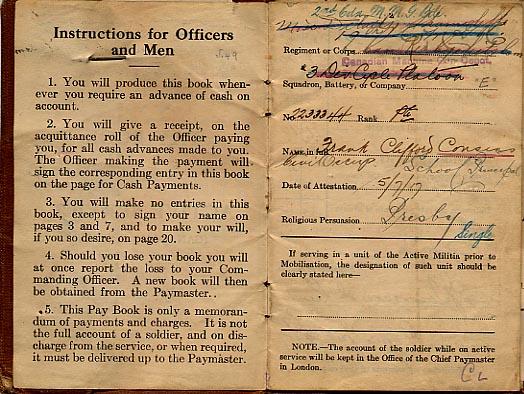 Instructions for Officers
and Men
1. You will produce this book when-
ever you require an advance of cash on
account.
2. You will give a receipt, on the
acquittance roll of the Officer paying
you, for all cash advances made to you.
The Officer making the payment will
sign the corresponding entry in this book
on the page for Cash Payments.
3. You will make no entries in this
book, except to sign your name on
pages 3 and 7, and to make your will,
if you so desire, on page 20.
4. Should you lose your book you will
at once report the loss to your Com-
manding Officer. A new book will then
be obtained from the Paymaster..
5. This Pay Book is only a memoran-
dum of payments and charges. It is not
the full account of a soldier, and on dis-
charge from the service, or when required,
it must be delivered up to the Paymaster.
2nd Cdn. M.M.G. Bde.
Regiment or Corps
Canadian Machine Gun Depot
Squadron, Battery, or Company "E"
No. 2233344 Rank Pte
NAME in full Frank Clifford Cousins
Civil Occup. School Principal
Date of Attestation 5/7/17
Religious Persuasion Presby
Single
If serving in a unit of the Active Militia prior to
Mobilisation, the designation of such unit should be
clearly stated here—
NOTE.—The account of the soldier while on active
service will be kept in the Office of the Chief Paymaster
in London.